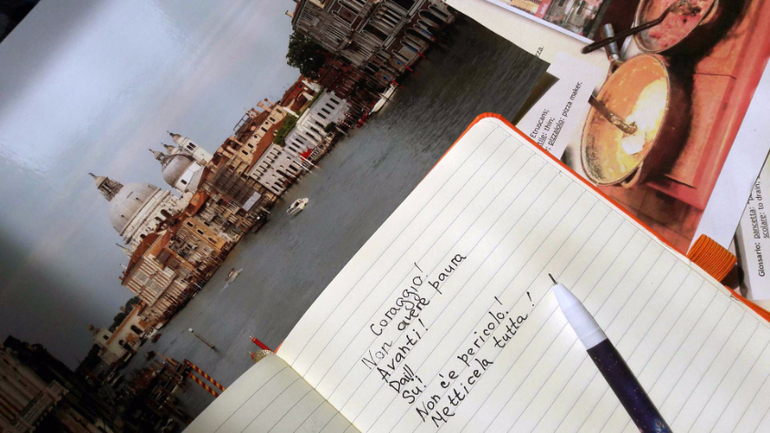 Coraggio!
Non avere paura
Avanti!
Dai!
Su!
Non c'è pericolo!
Metticela tutta!
za.
Etruscans;
thin;
pizzaiolo: pizza maker.
Glossario: pancetta:
scolare: to drain;